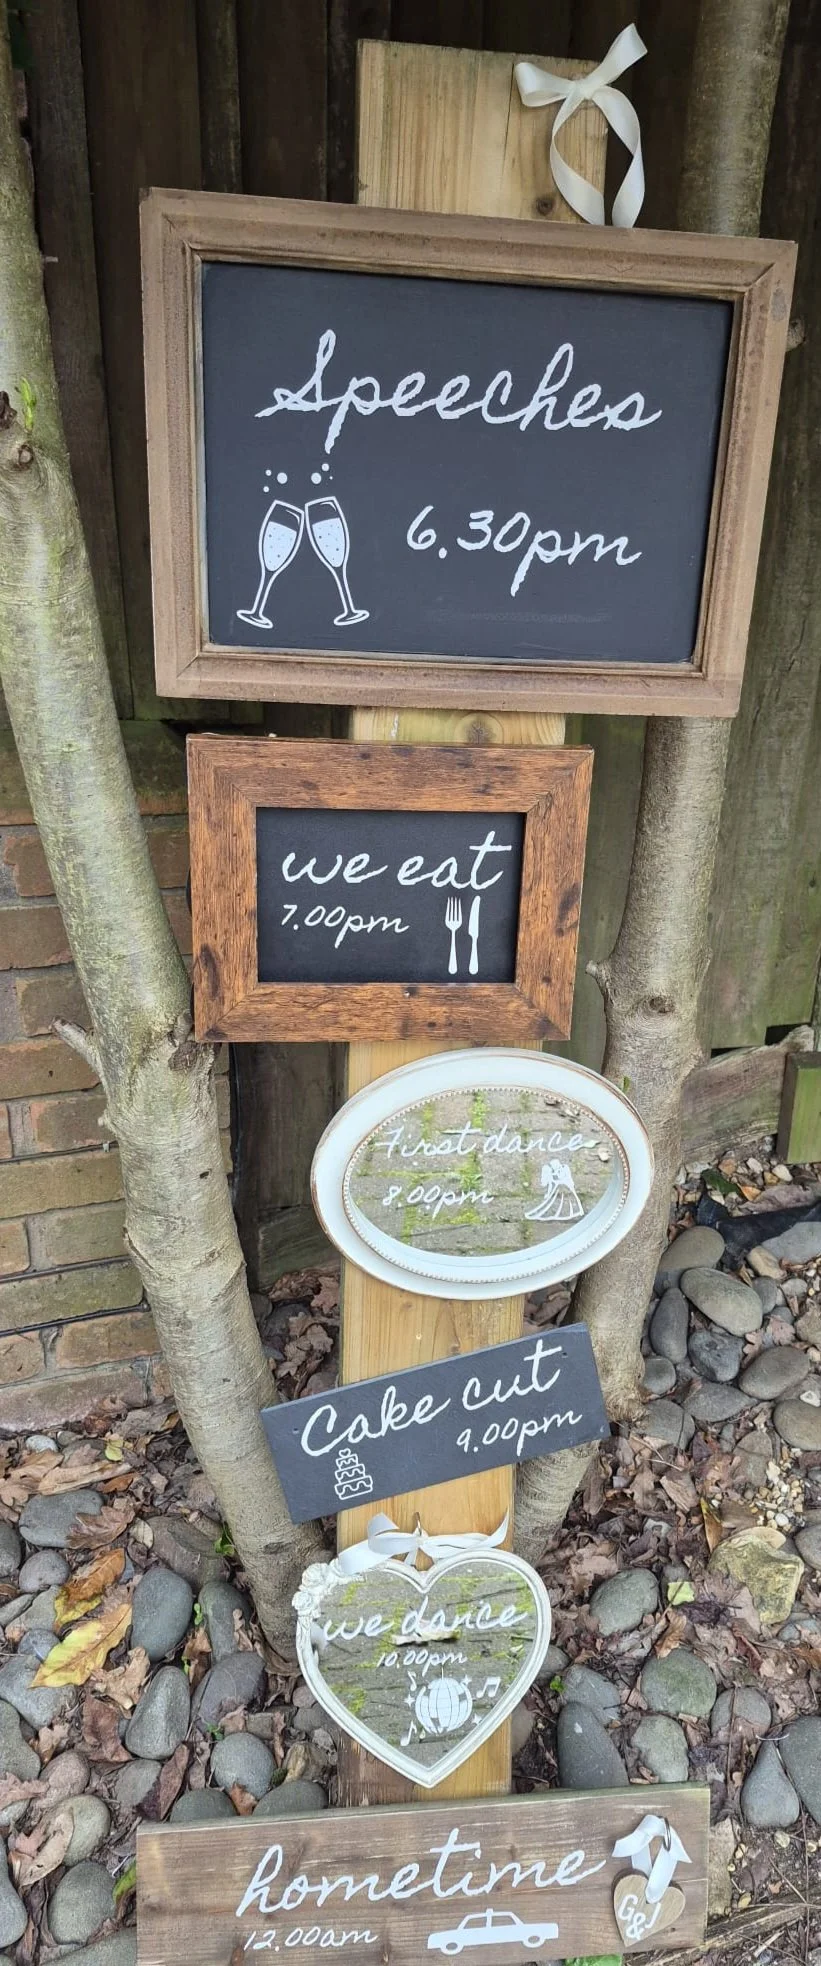 Speeches
6.30pm
we eat
7.00pm
First dance
8.00pm
Cake cut
9.00pm
we dance
10.00pm
hometime
12.00am
G&J